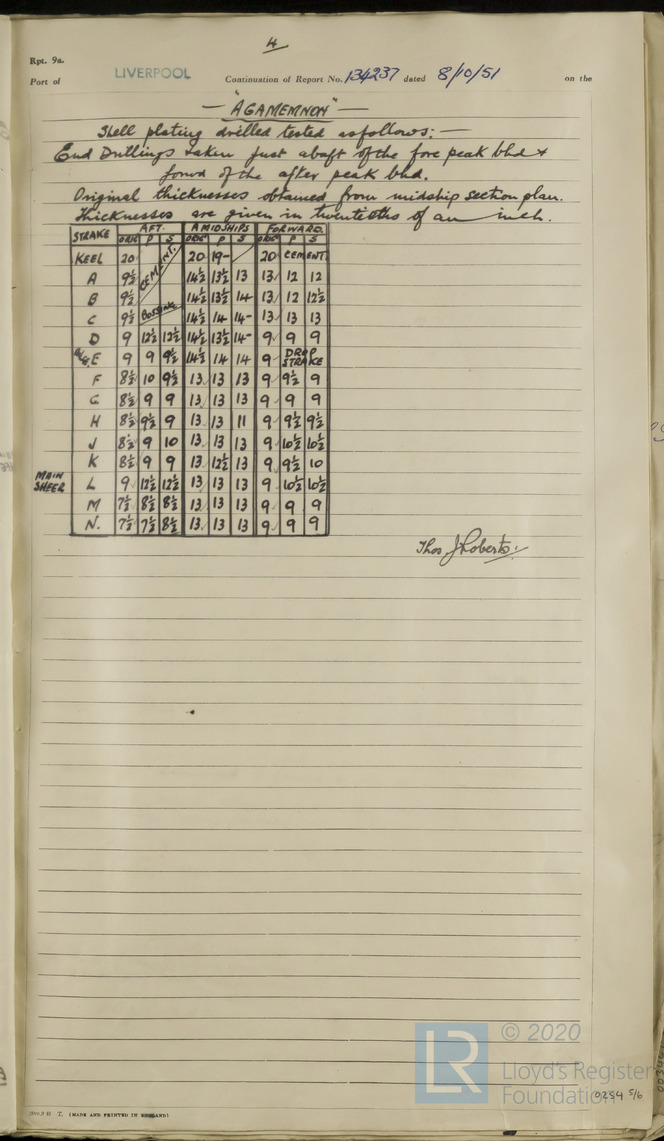 4
Rpt. 9a.
Port of LIVERPOOL Continuation of Report No. 134237 dated 8/10/51 on the
— "AGAMEMNON" —
Shell plating drilled tested as follows:—
End Drillings taken just abaft of the fore peak bhd &
forwd of the after peak bhd.
Original thicknesses obtained from midship section plan.
Thicknesses are given in twentieths of an inch.
STRAKE AFT. AMIDSHIPS FORWARD.
ORIG P S ORIG P S ORIG P S
KEEL 20 CEMENT. 20 19 – 20 CEMENT
A 9½ 14½ 13½ 13 13 12 12
B 9½ 14½ 13½ 14 13 12 12½
C 9½ BOSSING 14½ 14 14 13 13 13
D 9 12½ 12½ 14½ 13½ 14 9 9 9
E 9 9 9½ 14½ 14 14 9 DROP STRAKE
F 8½ 10 9½ 13 13 13 9 9½ 9
G 8½ 9 9 13 13 13 9 9 9
H 8½ 9½ 9 13 13 11 9 9½ 9½
J 8½ 9 10 13 13 13 9 10½ 10½
K 8½ 9 9 13 12½ 13 9 9½ 10
MAIN SHEER L 9 12½ 12½ 13 13 13 9 10½ 10½
M 7½ 8½ 8½ 13 13 13 9 9 9
N. 7½ 7½ 8½ 13 13 13 9 9 9
Thos J Roberts.
© 2020
LR Lloyd's Register
Foundation
0254 5/6
T. (MADE AND PRINTED IN ENGLAND)